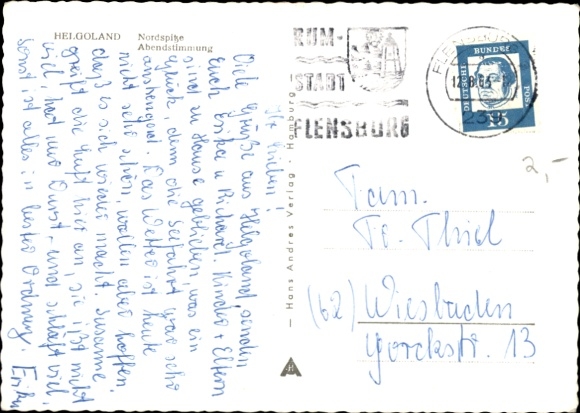 HELGOLAND Nordspitze
Abendstimmung
Ihr Lieben!
Viele Grüße aus Helgoland, senden
Euch Erika u. Richard. Kinder + Eltern
sind zu Hause geblieben, was ein
Glück, denn die Seefahrt war sehr
anstrengend. Das Wetter ist heute
nicht sehr schön, wollen aber hoffen,
daß es sich wieder macht. Susanne
greift die Luft hier an, sie ißt nicht
viel, hat nur Durst - und schläft viel.
Sonst ist alles in bester Ordnung. Erika
— Hans Andres Verlag - Hamburg
RUM-
STADT
FLENSBURG
FLENSBURG
239
DEUTSCHE BUNDESPOST
15
2,-
Fam.
Thiel
(62) Wiesbaden
Yorckstr. 13